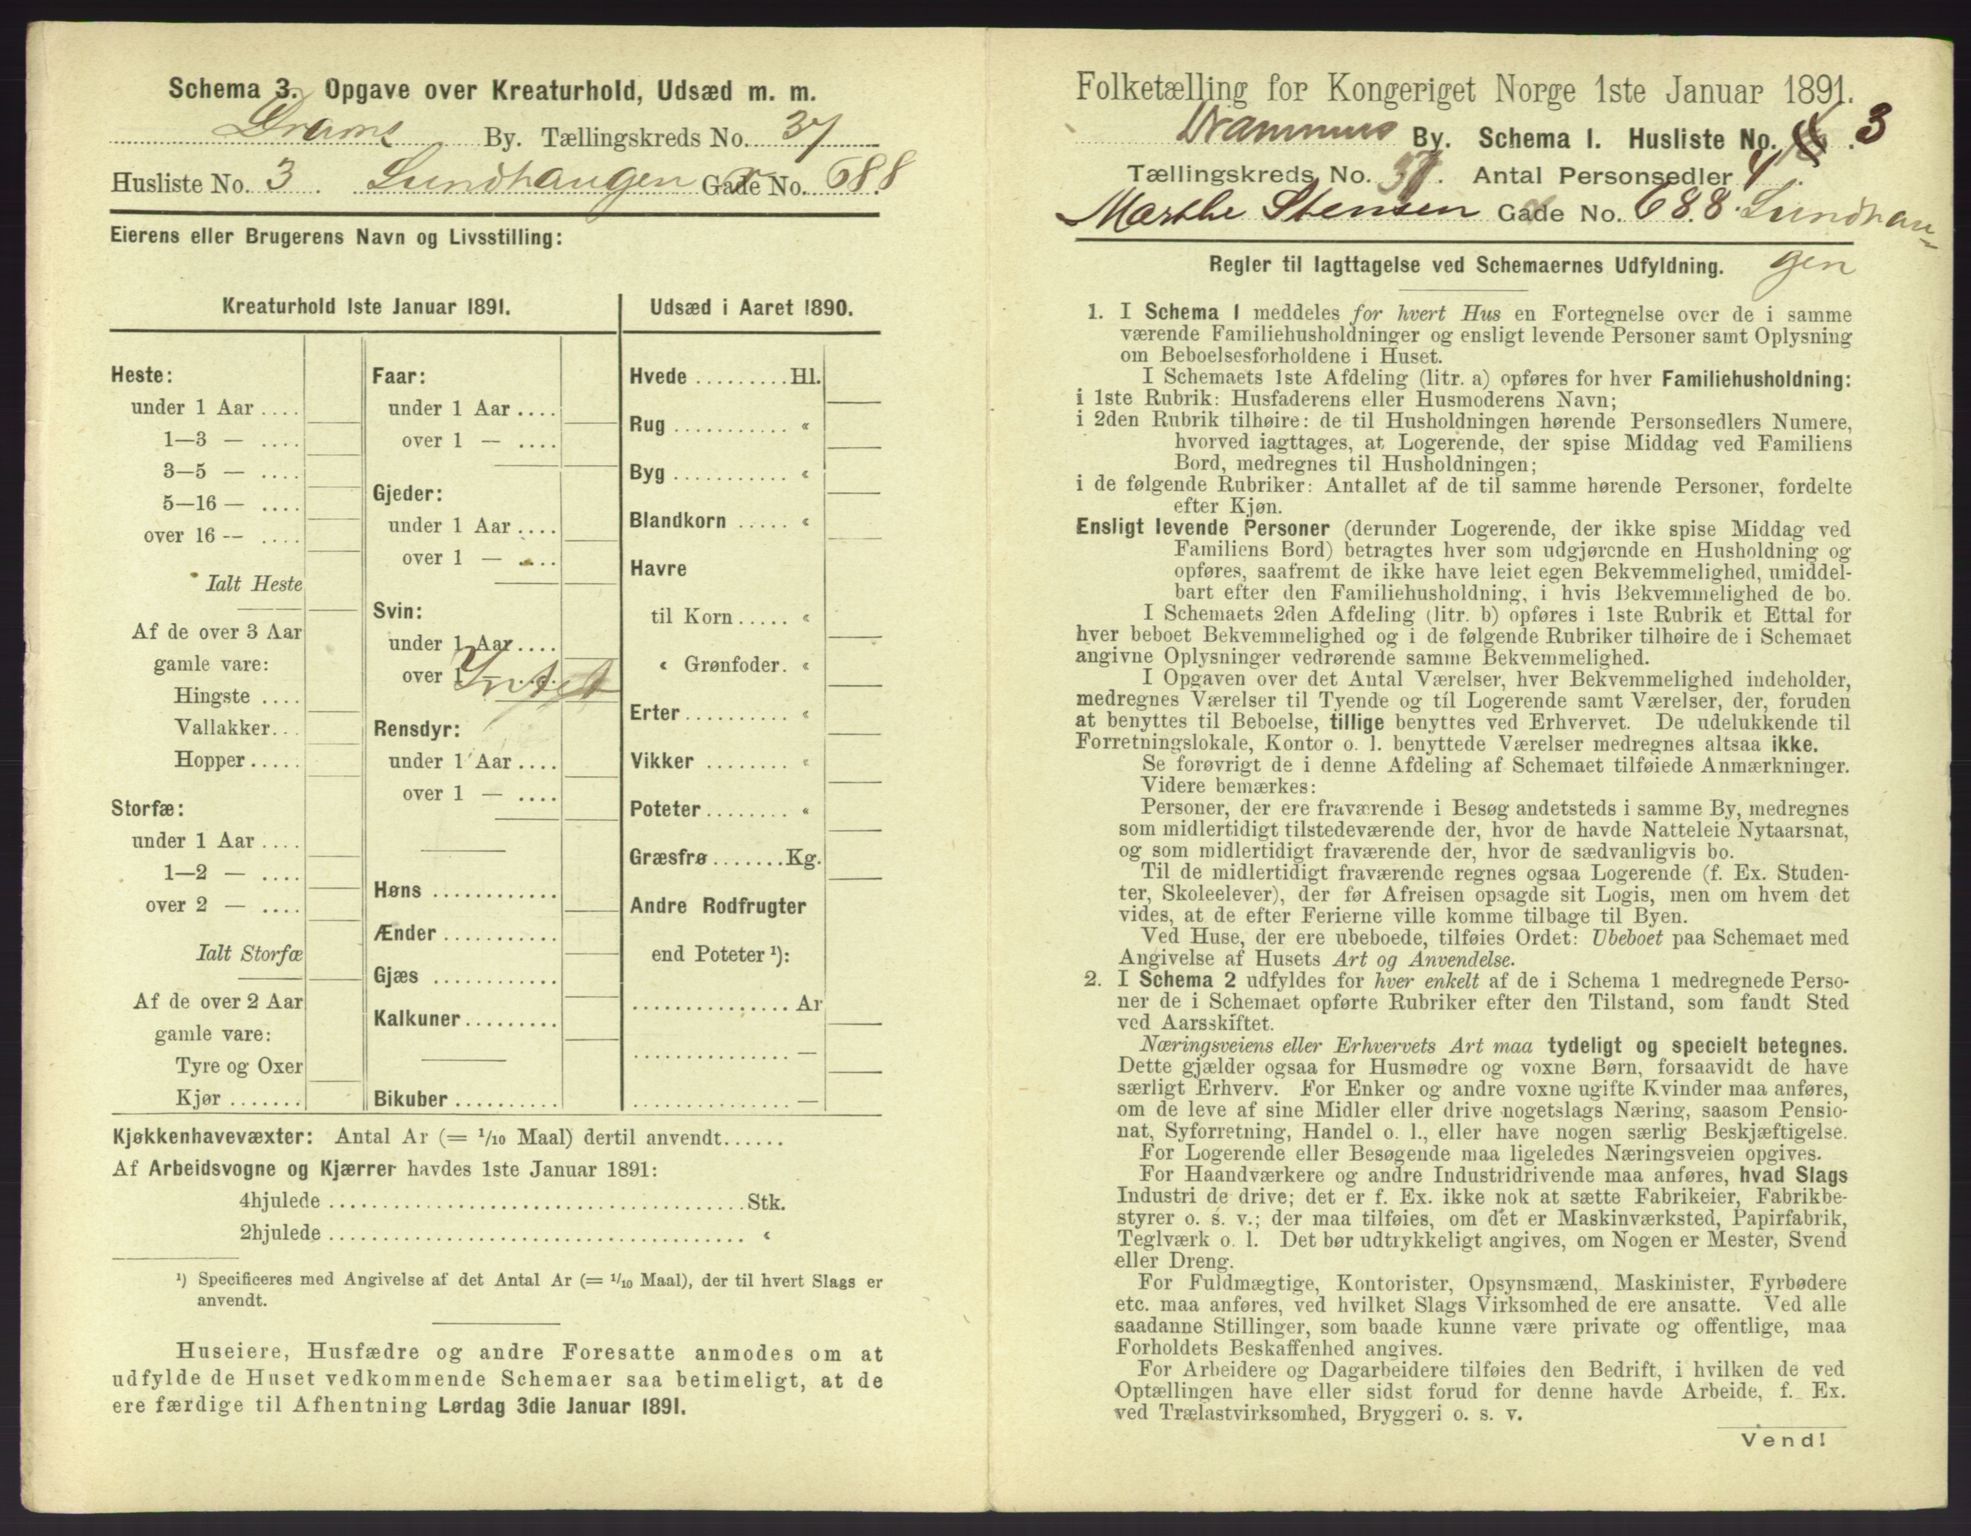 Schema 3. Opgave over Kreaturhold, Udsæd m. m.
Drams By. Tællingskreds No. 37
Husliste No. 3 Sundhaugen Gade No. 688
Eierens eller Brugerens Navn og Livsstilling:
Kreaturhold 1ste Januar 1891.
Heste:
under 1 Aar ....
1—3 — ....
3—5 — ....
5—16 — ....
over 16 -- ....
Ialt Heste
Af de over 3 Aar
gamle vare:
Hingste ....
Vallakker...
Hopper.....
Storfæ:
under 1 Aar ....
1—2 — ....
over 2 — ....
Ialt Storfæ
Af de over 2 Aar
gamle vare:
Tyre og Oxer
Kjør .......
Faar:
under 1 Aar ....
over 1 — ....
Gjeder:
under 1 Aar ....
over 1 — ....
Svin:
under 1 Aar....
over 1 — ....
Intet
Rensdyr:
under 1 Aar ....
over 1 — ....
Høns ............
Ænder ...........
Gjæs ............
Kalkuner.........
Bikuber ..........
Udsæd i Aaret 1890.
Hvede .........Hl.
Rug ........... «
Byg ........... «
Blandkorn ..... «
Havre
til Korn ..... «
« Grønfoder. «
Erter.......... «
Vikker ........ «
Poteter........ «
Græsfrø.......Kg.
Andre Rodfrugter
end Poteter ¹):
............... Ar
............... —
............... —
Kjøkkenhavevæxter: Antal Ar (= 1/10 Maal) dertil anvendt......
Af Arbeidsvogne og Kjærrer havdes 1ste Januar 1891:
4hjulede .....................................Stk.
2hjulede ..................................... «
¹) Specificeres med Angivelse af det Antal Ar (= 1/10 Maal), der til hvert Slags er
anvendt.
Huseiere, Husfædre og andre Foresatte anmodes om at
udfylde de Huset vedkommende Schemaer saa betimeligt, at de
ere færdige til Afhentning Lørdag 3die Januar 1891.
Folketælling for Kongeriget Norge 1ste Januar 1891.
Drammens By. Schema I. Husliste No. 3
Tællingskreds No. 37. Antal Personsedler 4
Marthe Stensen Gade No. 688. Sundhau-
gen
Regler til Iagttagelse ved Schemaernes Udfyldning.
1. I Schema I meddeles for hvert Hus en Fortegnelse over de i samme
værende Familiehusholdninger og ensligt levende Personer samt Oplysning
om Beboelsesforholdene i Huset.
I Schemaets 1ste Afdeling (litr. a) opføres for hver Familiehusholdning:
i 1ste Rubrik: Husfaderens eller Husmoderens Navn;
i 2den Rubrik tilhøire: de til Husholdningen hørende Personsedlers Numere,
hvorved iagttages, at Logerende, der spise Middag ved Familiens
Bord, medregnes til Husholdningen;
i de følgende Rubriker: Antallet af de til samme hørende Personer, fordelte
efter Kjøn.
Ensligt levende Personer (derunder Logerende, der ikke spise Middag ved
Familiens Bord) betragtes hver som udgjørende en Husholdning og
opføres, saafremt de ikke have leiet egen Bekvemmelighed, umiddel-
bart efter den Familiehusholdning, i hvis Bekvemmelighed de bo.
I Schemaets 2den Afdeling (litr. b) opføres i 1ste Rubrik et Ettal for
hver beboet Bekvemmelighed og i de følgende Rubriker tilhøire de i Schemaet
angivne Oplysninger vedrørende samme Bekvemmelighed.
I Opgaven over det Antal Værelser, hver Bekvemmelighed indeholder,
medregnes Værelser til Tyende og til Logerende samt Værelser, der, foruden
at benyttes til Beboelse, tillige benyttes ved Erhvervet. De udelukkende til
Forretningslokale, Kontor o. l. benyttede Værelser medregnes altsaa ikke.
Se forøvrigt de i denne Afdeling af Schemaet tilføiede Anmærkninger.
Videre bemærkes:
Personer, der ere fraværende i Besøg andetsteds i samme By, medregnes
som midlertidigt tilstedeværende der, hvor de havde Natteleie Nytaarsnat,
og som midlertidigt fraværende der, hvor de sædvanligvis bo.
Til de midlertidigt fraværende regnes ogsaa Logerende (f. Ex. Studen-
ter, Skoleelever), der før Afreisen opsagde sit Logis, men om hvem det
vides, at de efter Ferierne ville komme tilbage til Byen.
Ved Huse, der ere ubeboede, tilføies Ordet: Ubeboet paa Schemaet med
Angivelse af Husets Art og Anvendelse.
2. I Schema 2 udfyldes for hver enkelt af de i Schema 1 medregnede Perso-
ner de i Schemaet opførte Rubriker efter den Tilstand, som fandt Sted
ved Aarsskiftet.
Næringsveiens eller Erhvervets Art maa tydeligt og specielt betegnes.
Dette gjælder ogsaa for Husmødre og voxne Børn, forsaavidt de have
særligt Erhverv. For Enker og andre voxne ugifte Kvinder maa anføres,
om de leve af sine Midler eller drive nogetslags Næring, saasom Pensio-
nat, Syforretning, Handel o. l., eller have nogen særlig Beskjæftigelse.
For Logerende eller Besøgende maa ligeledes Næringsveien opgives.
For Haandværkere og andre Industridrivende maa anføres, hvad Slags
Industri de drive; det er f. Ex. ikke nok at sætte Fabrikeier, Fabrikbe-
styrer o. s. v.; der maa tilføies, om det er Maskinværksted, Papirfabrik,
Teglværk o. l. Det bør udtrykkeligt angives, om Nogen er Mester, Svend
eller Dreng.
For Fuldmægtige, Kontorister, Opsynsmænd, Maskinister, Fyrbødere
etc. maa anføres, ved hvilket Slags Virksomhed de ere ansatte. Ved alle
saadanne Stillinger, som baade kunne være private og offentlige, maa
Forholdets Beskaffenhed angives.
For Arbeidere og Dagarbeidere tilføies den Bedrift, i hvilken de ved
Optællingen have eller sidst forud for denne havde Arbeide, f. Ex.
ved Trælastvirksomhed, Bryggeri o. s. v.
Vend!